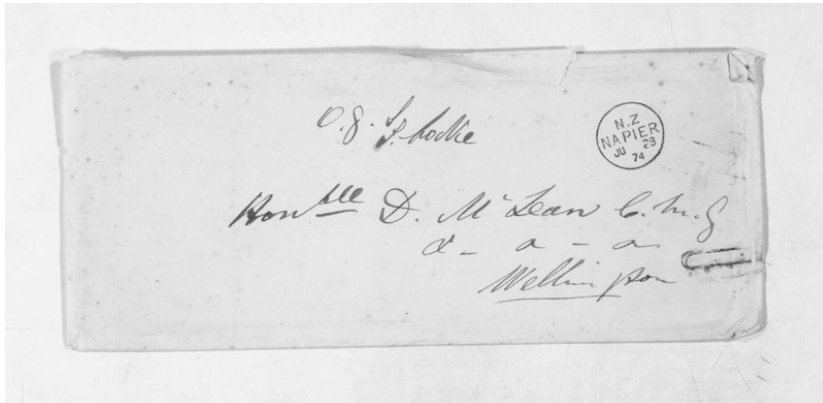 O.S. S. Locke
N.Z
NAPIER
JU 28
74
Honble D. McLean C.M.G
&- a - a
Wellington